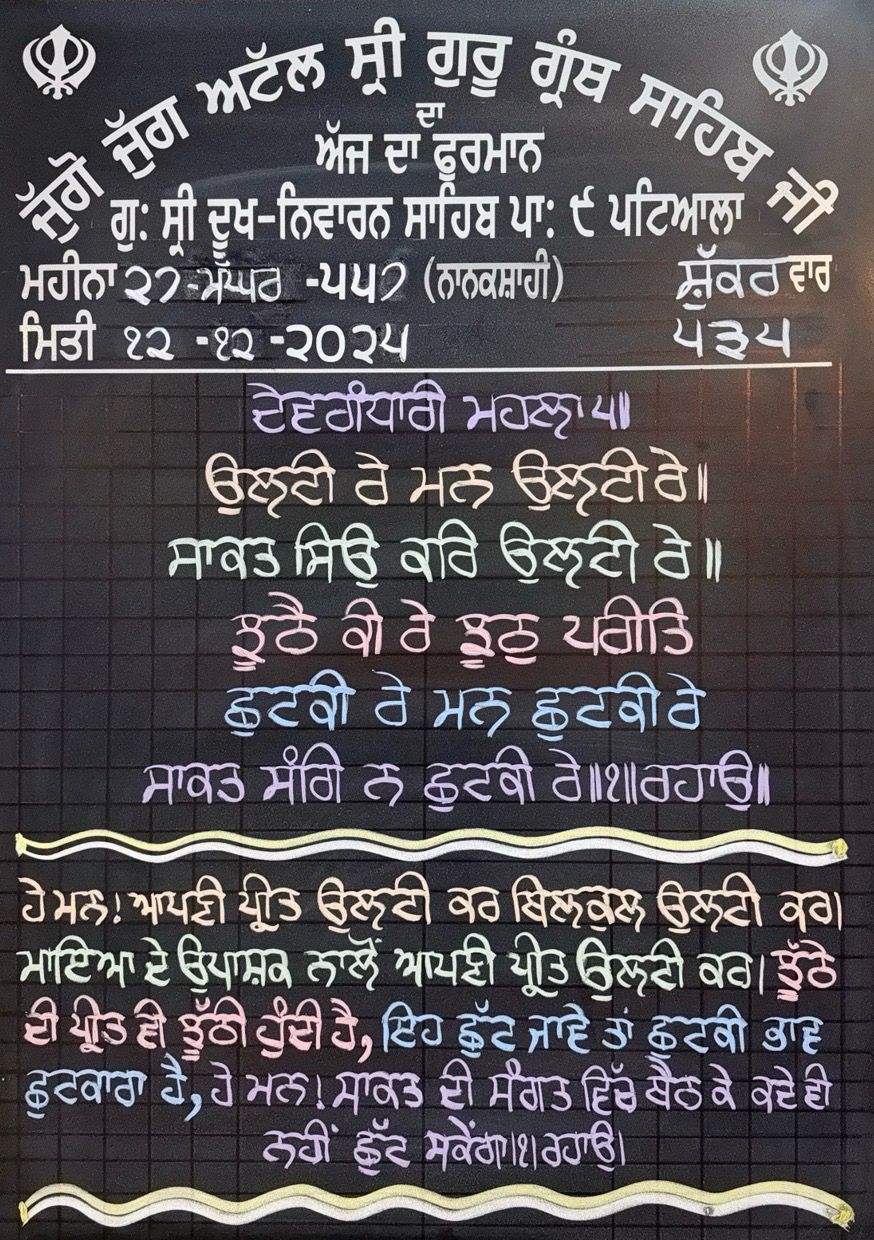 ਜੁੱਗੋ ਜੁੱਗ ਅਟੱਲ ਸ੍ਰੀ ਗੁਰੂ ਗ੍ਰੰਥ ਸਾਹਿਬ ਜੀ
ਦਾ
ਅੱਜ ਦਾ ਫੁਰਮਾਨ
ਗੁ: ਸ੍ਰੀ ਦੂਖ-ਨਿਵਾਰਨ ਸਾਹਿਬ ਪਾ: ੯ ਪਟਿਆਲਾ
ਮਹੀਨਾ ੨੭-ਮੱਘਰ -੫੫੭ (ਨਾਨਕਸ਼ਾਹੀ) ਸ਼ੁੱਕਰ ਵਾਰ
ਮਿਤੀ ੧੨ -੧੨ -੨੦੨੫ ੫੩੫
ਦੇਵਗੰਧਾਰੀ ਮਹਲਾ ੫॥
ਉਲਟੀ ਰੇ ਮਨ ਉਲਟੀ ਰੇ॥
ਸਾਕਤ ਸਿਉ ਕਰਿ ਉਲਟੀ ਰੇ॥
ਝੂਠੈ ਕੀ ਰੇ ਝੂਠੁ ਪਰੀਤਿ
ਛੁਟਕੀ ਰੇ ਮਨ ਛੁਟਕੀ ਰੇ
ਸਾਕਤ ਸੰਗਿ ਨ ਛੁਟਕੀ ਰੇ॥੧॥ਰਹਾਉ॥
ਹੇ ਮਨ! ਆਪਣੀ ਪ੍ਰੀਤ ਉਲਟੀ ਕਰ ਬਿਲਕੁਲ ਉਲਟੀ ਕਰ।
ਮਾਇਆ ਦੇ ਉਪਾਸ਼ਕ ਨਾਲੋਂ ਆਪਣੀ ਪ੍ਰੀਤ ਉਲਟੀ ਕਰ। ਝੂੱਠੇ
ਦੀ ਪ੍ਰੀਤ ਵੀ ਝੂੱਠੀ ਹੁੰਦੀ ਹੈ, ਇਹ ਛੁੱਟ ਜਾਵੇ ਤਾਂ ਛੁਟਕੀ ਭਾਵ
ਛੁਟਕਾਰਾ ਹੈ, ਹੇ ਮਨ! ਸਾਕਤ ਦੀ ਸੰਗਤ ਵਿੱਚ ਬੈਠ ਕੇ ਕਦੇ ਵੀ
ਨਹੀਂ ਛੁੱਟ ਸਕੇਂਗਾ।੧।ਰਹਾਉ।